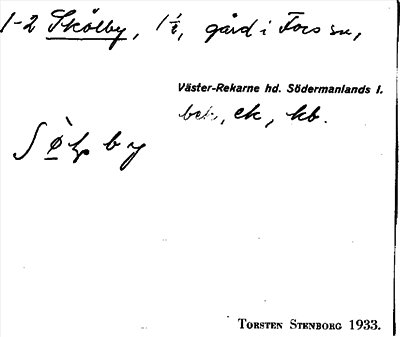 1-2 Skölby, 1 1/2, gård i Fors sn,
Väster-Rekarne hd. Södermanlands l.
bek, ek, kb.
TORSTEN STENBORG 1933.